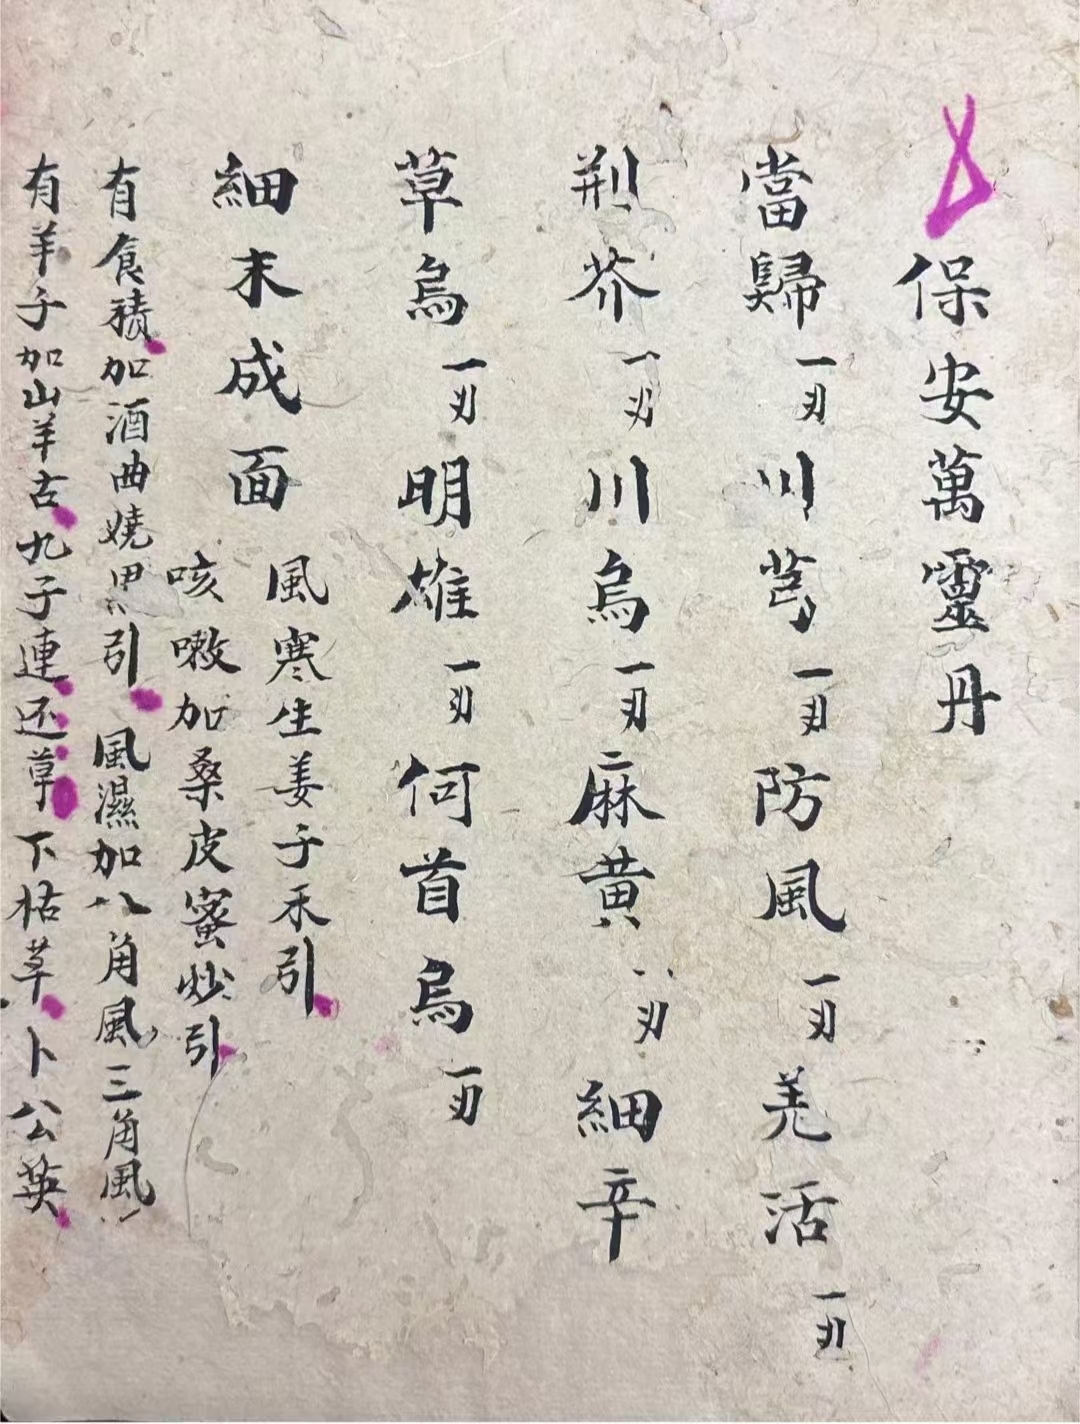 保安萬靈丹
當歸一刄川芎一刄防風一刄羌活一刄
荆芥一刄川烏一刄麻黄八刄細辛
草烏一刄明雄一刄何首烏一刄
細末成面
風寒生姜子禾引
咳嗽加桑皮蜜炒引
有食積加酒曲燒黑引風濕加八角風三角風
有羊子加山羊古九子連还草下枯草卜公英